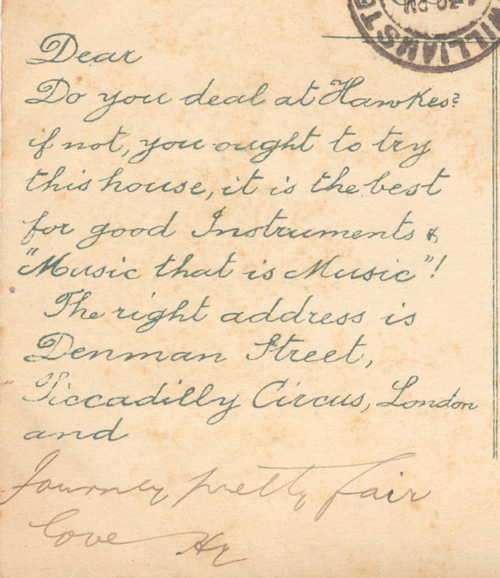 4.30 PM
WILLIAMSTO
Dear
Do you deal at Hawkes?
if not, you ought to try
this house, it is the best
for good Instruments &
"Music that is Music"!
The right address is
Denman Street,
Piccadilly Circus, London
and
Journey pretty fair
Love